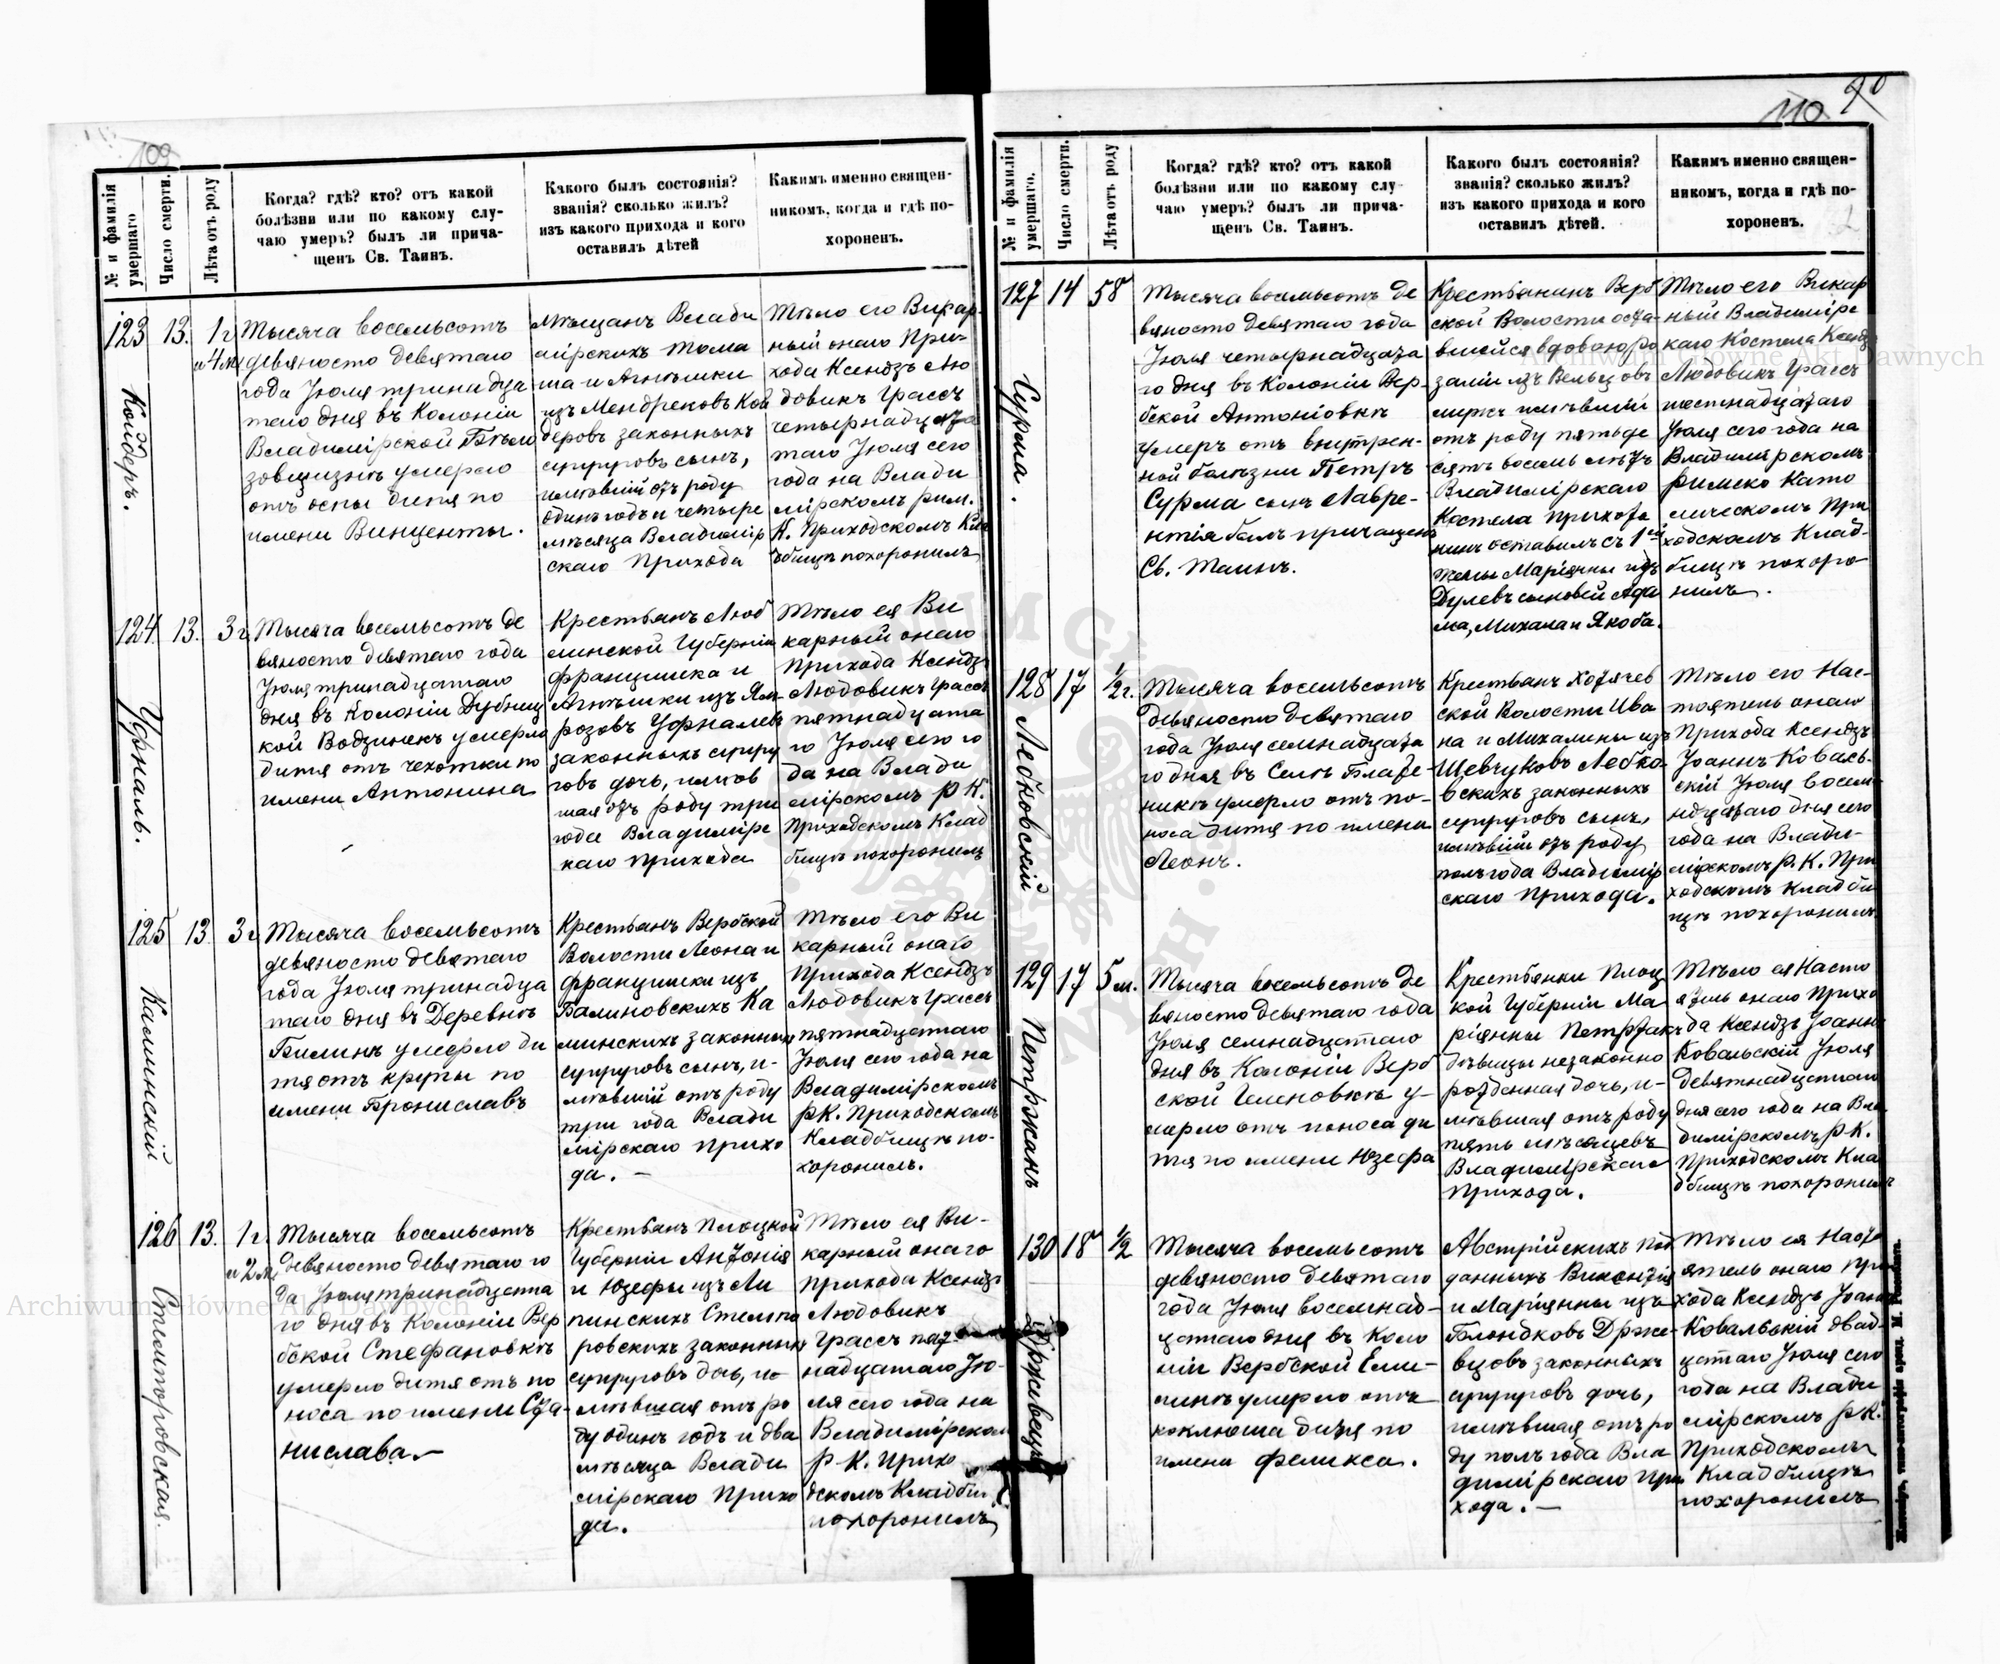 109
№ и фамилія умершаго
Число смерти.
Лѣта отъ роду
Когда? гдѣ? кто? отъ какой
болѣзни или по какому слу-
чаю умеръ? былъ ли прича-
щенъ Св. Таинъ.
Какого былъ состоянія?
званія? сколько жилъ?
изъ какого прихода и кого
оставилъ дѣтей
Какимъ именно священ-
никомъ, когда и гдѣ по-
хороненъ.
123
Койдеръ.
13.
1 г
и 4 м
Тысяча восемьсотъ
девяносто девятаго
года Іюля тринадца
таго дня въ Колоніи
Владимірской Бѣло
зовщизнѣ умерло
отъ оспы дитя по
имени Винценты.
мѣщанъ Влади
мірскихъ Тома
ша и Агнѣшки
изъ Мендрековъ Кой
деровъ законныхъ
супруговъ сынъ,
имѣвшій отъ роду
одинъ годъ и четыре
мѣсяца Владимір
скаго Прихода
Тѣло его Викар-
ный онаго При-
хода Ксендзъ Лю
довикъ Грассъ
четырнадцата
таго Іюля сего
года на Влади
мірскомъ рим.
К. Приходскомъ Кла
дбищѣ похоронилъ
124.
Уфналь.
13.
3 г
Тысяча восемьсотъ де
вяносто девятаго года
Іюля тринадцатаго
дня въ Колоніи Дубниц
кой Водзинекъ умерло
дитя отъ чехотки по
имени Антонина
Крестьянъ Люб
линской Губерніи
Францишка и
Агнѣшки изъ Ям
розовъ Уфналевъ
законныхъ супру
говъ дочь, имѣв
шая отъ роду три
года Владимірс
каго прихода
Тѣло ея Ви
карный онаго
Прихода Ксендзъ
Людовикъ Грассъ
пятнадцата
го Іюля сего го
да на Влади
мірскомъ р К.
Приходскомъ Клад
бищѣ похоронилъ
125
Калинскій
13.
3 г
Тысяча восемьсотъ
девяносто девятаго
года Іюля тринадца
таго дня въ Деревнѣ
Билинъ умерло ди
тя отъ крупы по
имени Брониславъ
Крестьянъ Вербской
Волости Леона и
Францишки изъ
Балиновскихъ Ка
линскихъ законныхъ
супруговъ сынъ, и-
мѣвшій отъ роду
три года Влади
мірскаго прихо
да. —
Тѣло его Ви
карный онаго
Прихода Ксендзъ
Людовикъ Грассъ
пятнадцатаго
Іюля сего года на
Владимірскомъ
р К. Приходскомъ
Кладбищѣ по-
хоронилъ.
126
Стемпоровская.
13.
1 г.
и 2 м.
Тысяча восемьсотъ
девяносто девятаго го
да Іюля тринадцата
го дня въ Колоніи Вер
бской Стефановкѣ
умерло дитя отъ по
носа по имени Ста-
нислава. —
Крестьянъ Плоцкой
Губерніи Антонія
и Юзефы изъ Ли
пинскихъ Стемпо
ровскихъ законныхъ
супруговъ дочь, и
мѣвшая отъ ро
ду одинъ годъ и два
мѣсяца Влади
мірскаго Прихо
да.
Тѣло ея Ви-
карный онаго
прихода Ксендзъ
Людовикъ
Грассъ пят-
надцатаго Ію-
ля сего года на
Владимірскомъ
р К. Прихо
дскомъ Кладбищ
похоронилъ
110
90
№ и фамилія умершаго.
Число смерти.
Лѣта отъ роду
Когда? гдѣ? кто? отъ какой
болѣзни или по какому слу-
чаю умеръ? былъ ли прича-
щенъ Св. Таинъ.
Какого былъ состоянія?
званія? сколько жилъ?
изъ какого прихода и кого
оставилъ дѣтей.
Какимъ именно священ-
никомъ, когда и гдѣ по-
хороненъ.
127
Сурма.
14
58
Тысяча восемьсотъ де
вяносто девятаго года
Іюля четырнадцата
го дня въ Колоніи Вер-
бской Антоніовкѣ
умеръ отъ внутрен-
ной болѣзни Петръ
Сурма сынъ Лавре-
нтія былъ причащенъ
Св. Таинъ.
Крестьянинъ Верб
ской Волости оста-
вшейся вдовою ро
заліи изъ Вельцовъ
мужъ имѣвшій
отъ роду пятьде
сятъ восемь лѣтъ
Владимірскаго
Костела прихожа
нинъ оставилъ съ 1ой
жены Маріянны изъ
Дулевъ сыновей Ада
ма, Михала и Якоба.
Тѣло его Викар
ный Владимірс
каго Костела Ксендз
Людовикъ Грассъ
шестнадцатаго
Іюля сего года на
Владимірскомъ
римско Като
лическомъ При
ходскомъ Клад-
бищѣ похоро
нилъ.
128
Лебковскій
17
½ г.
Тысяча восемьсотъ
девяносто девятаго
года Іюля семнадцата
го дня въ Селѣ Блаже-
никѣ умерло отъ по-
носа дитя по имени
Леонъ.
Крестьянъ Хотячев
ской Волости Ива
на и Михалины изъ
Шевчуковъ Лебко-
вскихъ законныхъ
супруговъ сынъ,
имѣвшій отъ роду
полъ года Владимір
скаго Прихода.
Тѣло его Нас-
тоятель онаго
Прихода Ксендзъ
Іоаннъ Коваль-
скій Іюля восем-
надцатаго дня сего
года на Влади-
мірскомъ Р. К. При
ходскомъ Кладби
щѣ похоронилъ
129
Петржакъ
17
5 м.
Тысяча восемьсотъ де
вяносто девятаго года
Іюля семнадцатаго
дня въ Колоніи Верб
ской Геленовкѣ у-
мерло отъ поноса ди
тя по имени Юзефа
Крестьянки Плоц
кой Губерніи Ма
ріянны Петржакъ
дѣвицы незаконно
рожденная дочь, и-
мѣвшая отъ роду
пять мѣсяцевъ
Владимірскаго
Прихода.
Тѣло ея Насто
ятель онаго Прихо
да Ксендзъ Іоаннъ
Ковальскій Іюля
девятнадцатаго
дня сего года на Вла
димірскомъ р К.
Приходскомъ Кла
дбищѣ похоронилъ
130
Држевецка
18
½
Тысяча восемьсотъ
девяносто девятаго
года Іюля восемнад-
цатаго дня въ Коло
ніи Вербской Ели-
линѣ умерло отъ
коклюша дитя по
имени Феликса.
Австрійскихъ под
данныхъ Викентія
и Маріянны изъ
Блондковъ Држе-
вцовъ законныхъ
супруговъ дочь,
имѣвшая отъ ро
ду полъ года Вла
димірскаго При
хода. —
Тѣло ея Насто
ятель онаго При
хода Ксендзъ Іоаннъ
Ковальскій двад-
цатаго Іюля сего
года на Влади
мірскомъ р К.
Приходскомъ
Кладбищѣ
похоронилъ
Archiwum Główne Akt Dawnych
Archiwum Główne Akt Dawnych